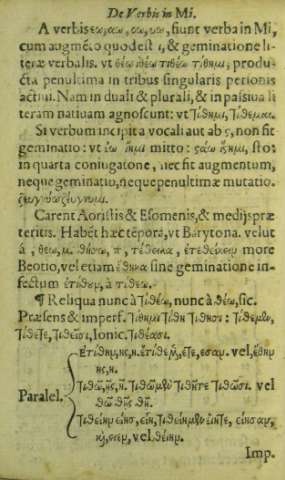 De Verbis in Mi.
A verbis εω, αω, οω, υω, fiunt verba in Mi,
cum augmẽto quod est ι, & geminatione li-
teræ verbalis. vt θέω ἱθέω τιθέω τίθημι, produ-
cta penultima in tribus singularis personis
actiui. Nam in duali & plurali, & in passiua li
teram natiuam agnoscunt: vt τίθημι, τίθεμαι
Si verbum incipit a vocali aut ab ς, non fit
geminatio: vt ἕω ἵημι mitto: ςάω ἵςημι, sto:
in quarta coniugatone, nec fit augmentum,
neque geminatio, neque penultimæ mutatio.
ζευγνύω ζεύγνυμι.
Carent Aoristis & Esomenis, & medijs præ
teritis. Habẽt hæc tẽpora, vt Barytona. velut
ἀ, θεω, μ. θήσω, π, τέθεικα, ἐτεθείκειν more
Beotio, vel etiam ἔθηκα sine geminatione in-
fectum ἐτίθην, à τιθέω.
¶ Reliqua nunc à τιθέω, nunc à θέω, sic.
Præsens & imperf. τίθημι τίθης τίθησι: τίθεμεν,
τίθετε, τιθεῖσι, Ionic. τιθέασι.
Paralel.
ἐτίθην, ης, η. ἐτίθεμεν, ετε, εσαν. vel, ἔθην
ης, η.
τιθῶ, ῆς, ῆ. τιθῶμεν τιθῆτε τιθῶσι. vel
θῶ θῆς θῆ.
τιθείην είης, είη, τιθείημεν είητε, είησαν,
vel, θείην.
Imp.